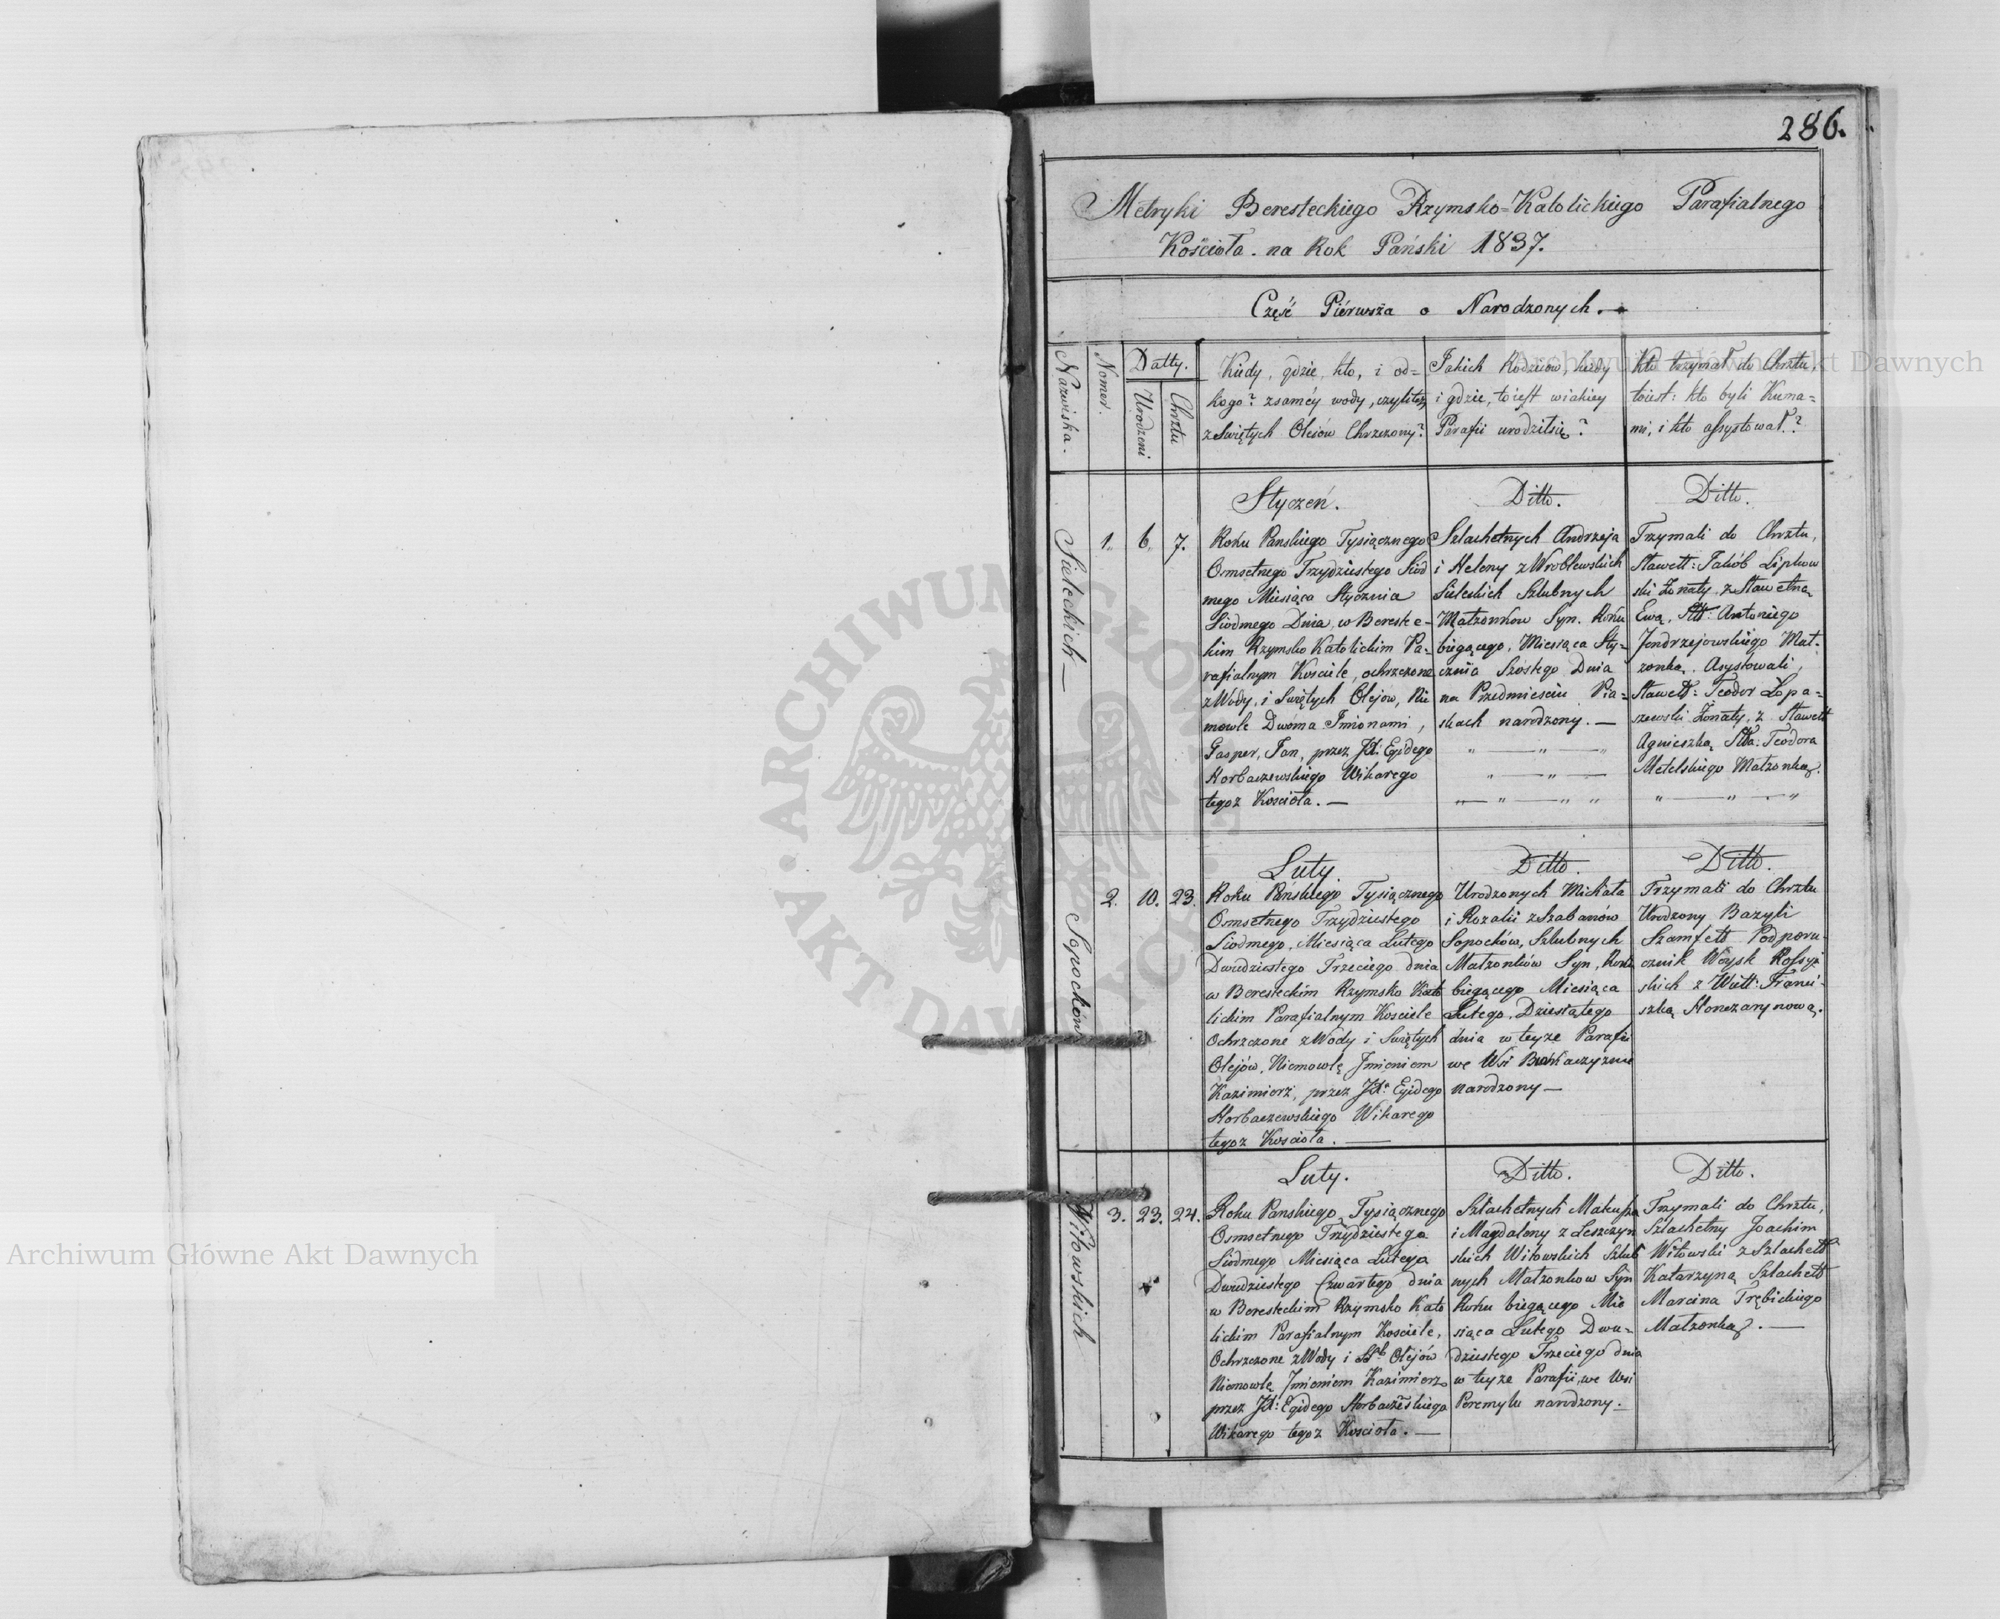 286.
Metryki Beresteckiego Rzymsko=Katolickiego Parafialnego
Kościoła. na Rok Pański 1837.
Część Piérwsza o Narodzonych.
Nazwiska.
Nomer.
Datty.
Urodzeni
Chrztu
Kiedy, gdzie, kto, i od=
kogo? zsaméy wody, czylitéż
z Swiętych Oleiow Chrzczony?
Jakich Rodziców, kiedy
i gdzie, toiest wiakiey
Parafii urodziłsię?
Kto trzymał do Chrztu,
toiest: kto byli Kuma=
mi, i kto assystował?
Sieleckich—
1. 6. 7.
Styczeń.
Roku Panskiego Tysiącznego
Osmsetnego Trzydziestego Siod
mego Miesiąca Stycznia
Siodmego Dnia, w Bereste-
kim Rzymsko Katolickim Pa-
rafialnym Kosciele, ochrzczone
z Wody, i Swiętych Olejow, Nie
mowle Dwoma Imionami,
Gasper, Jan, przez JX: Egidego
Horbaczewskiego Wikarego
tegoz Kosciola. —
Ditto.
Szlachetnych Andrzeja
i Heleny z Wroblewskich
Sieleckich Szlubnych
Małzonkow Syn. Roku
biegącego, Miesiąca Sty-
cznia Szostego Dnia
na Przedmiesciu Pia-
skach narodzony. —
Ditto.
Trzymali do Chrztu,
Sławett: Jakób Lipkow
ski Żonaty z Sławetną
Ewą, Antoniego
Jendrzejowskiego Mał-
zonką, Asystowali,
Sławett: Teodor Łopa-
szewski Żonaty, z Sławett
Agnieszką Teodora
Metelskiego Małzonką.
Sopocków
2. 10. 23.
Luty.
Roku Pańskiego Tysiącznego
Osmsetnego Trzydziestego
Siodmego, Miesiąca Lutego
Dwudziestego Trzeciego dnia
w Beresteckim Rzymsko Kato
lickim Parafialnym Kosciele
Ochrzczone z Wody i Swiętych
Olejów, Niemowlę Jmieniem
Kazimierz, przez JX: Egidego
Horbaczewskiego Wikarego
tegoz Kosciola. —
Ditto.
Urodzonych Michała
i Rozalii z Szabanów
Sopocków, Szlubnych
Małzonków Syn, Roku
biegącego Miesiąca
Lutego, Dziesiątego
dnia w teyze Parafii
we Wsi
narodzony —
Ditto.
Trzymali do Chrztu
Urodzony Bazyli
Szamfett Podporu-
cznik Woysk Rossyi
skich z Wiell: Franci-
szką Honczarynową.
Witowskich
3. 23. 24.
Luty.
Roku Panskiego, Tysiącznego
Osmsetnego Trzydziestego
Siodmego Miesiąca Lutego
Dwudziestego Czwartego dnia
w Beresteckim Rzymsko Kato
lickim Parafialnym Kosciele,
Ochrzczone z Wody i Olejów
Niemowlę Jmieniem Kazimierz
przez JX: Egidego
Wikarego tegoz Kosciola. —
Ditto.
Szlachetnych
i Magdaleny z Leszczyn
skich Witowskich Szlub
nych Małzonkow Syn
Roku biegącego Mie
siąca Lutego Dwu-
dziestego Trzeciego dnia
w teyze Parafii, we Wsi
Peremylu narodzony. —
Ditto.
Trzymali do Chrztu,
Szlachetny Joachim
Witowski z Szlachett
Katarzyną Szlachett
Marcina Trębickiego
Małzonką. —
Archiwum Główne Akt Dawnych
Archiwum Główne Akt Dawnych
ARCHIWUM GŁÓWNE AKT DAWNYCH